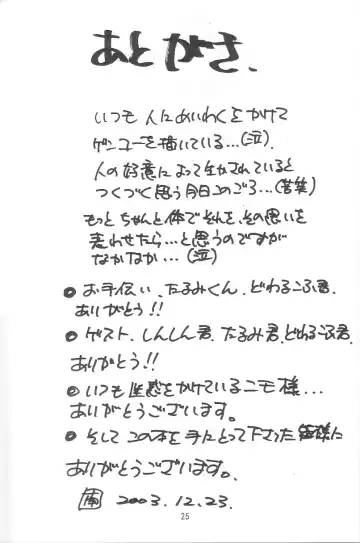 あとがき、
いつも 人にめいわくをかけて
ゲンコーを描いている…(泣)、
人の好意によって生かされていると
つくづく思う今日このごろ…(苦笑)
もっとちゃんと体でそれを、その思いを
表わせたら…と思うのですが
なかなか…(泣)
●お手伝い、たるみくん、どわるこふ君、
ありがとう!!
●ゲスト、しんしん君、たるみ君、どわるこふ君、
ありがとう!!
●いつも迷惑をかけているニモ様…
ありがとうございます。
●そしてこの本を手にとって下さった皆様に
ありがとうございます。
2003.12.23.
25